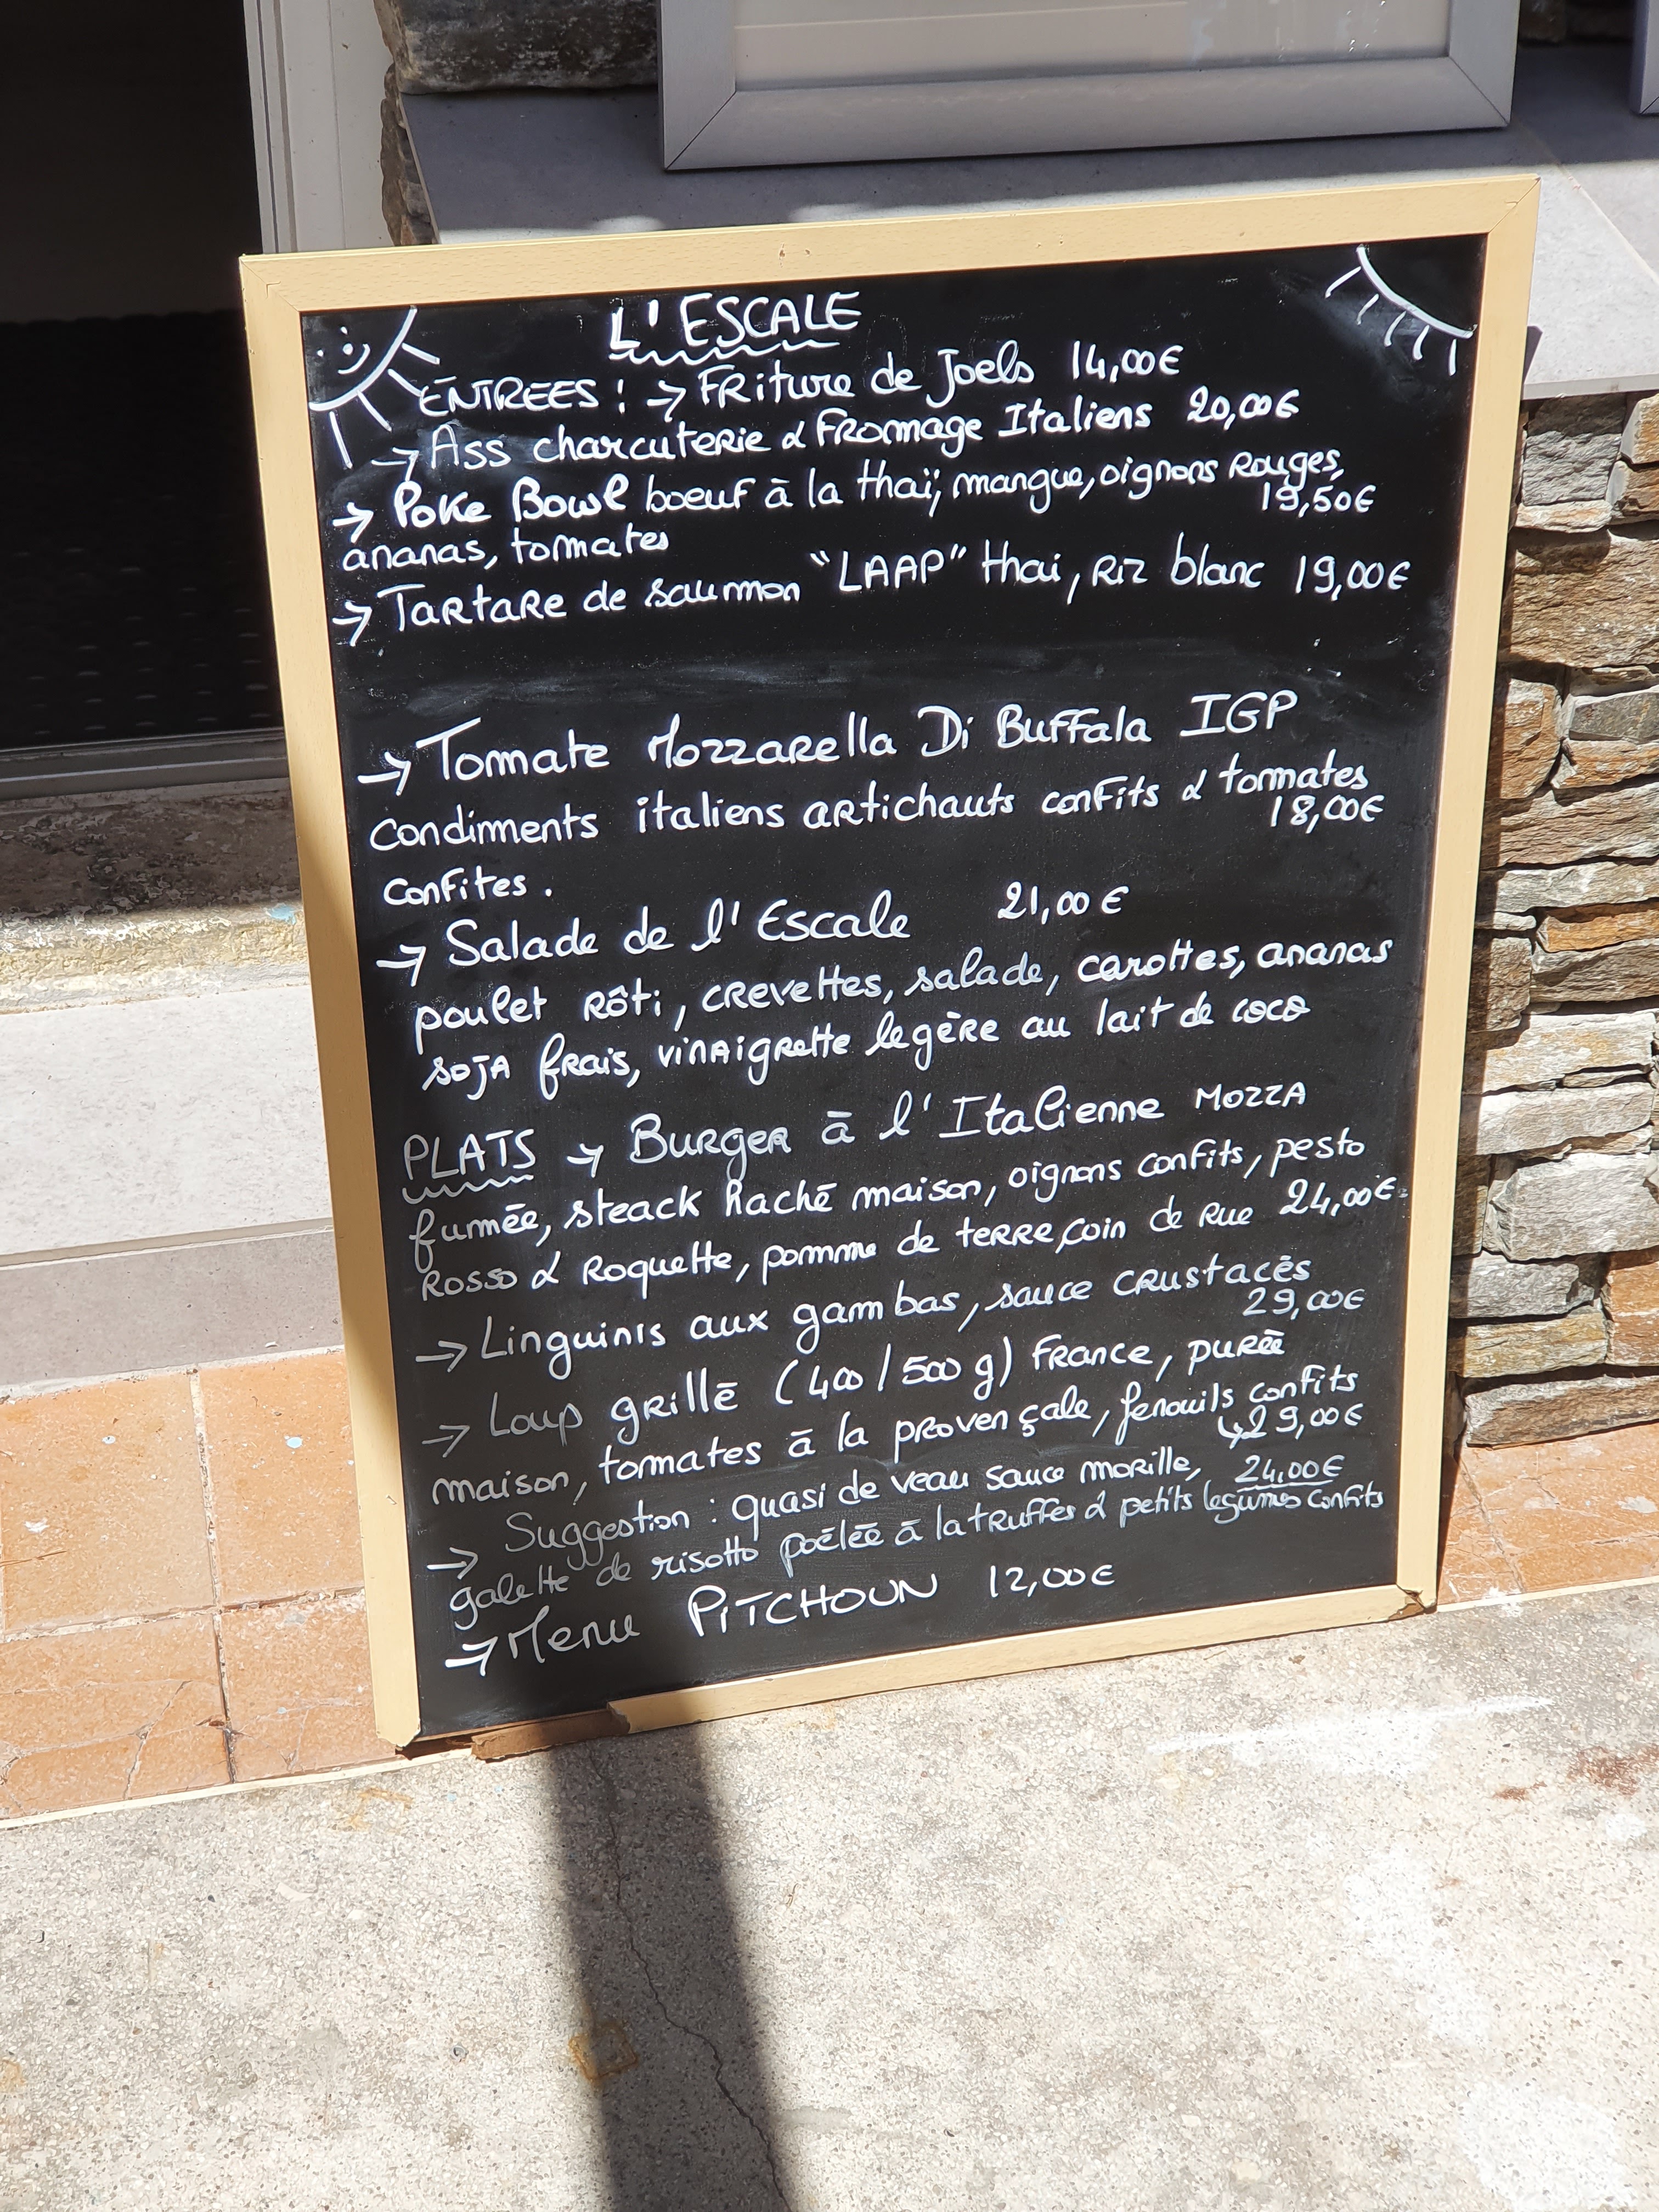 L'ESCALE
ENTREES : → FRiture de Joels 14,00€
→ Ass charcuterie & Fromage Italiens 20,00€
→ Poke Bowl boeuf à la thaï, mangue, oignons Rouges,
19,50€
ananas, tomates
→ Tartare de saumon "LAAP" thai, Riz blanc 19,00€
→ Tomate Mozzarella Di Buffala IGP
Condiments italiens artichauts confits & tomates
18,00€
confites.
→ Salade de l'Escale 21,00€
poulet Rôti, crevettes, salade, carottes, ananas
soja frais, vinaigrette legère au lait de coco
PLATS → Burger à l'Italienne MOZZA
fumée, steack haché maison, oignons confits, pesto
Rosso & Roquette, pomme de terre, coin de Rue 24,00€
→ Linguinis aux gambas, sauce crustacés
29,00€
→ Loup grillé (400/500 g) France, purée
maison, tomates à la provençale, fenouils confits
↳ 29,00€
→ Suggestion : quasi de veau sauce morille, 24,00€
galette de risotto poêlée à la truffes & petits legumes confits
→ Menu PITCHOUN 12,00€